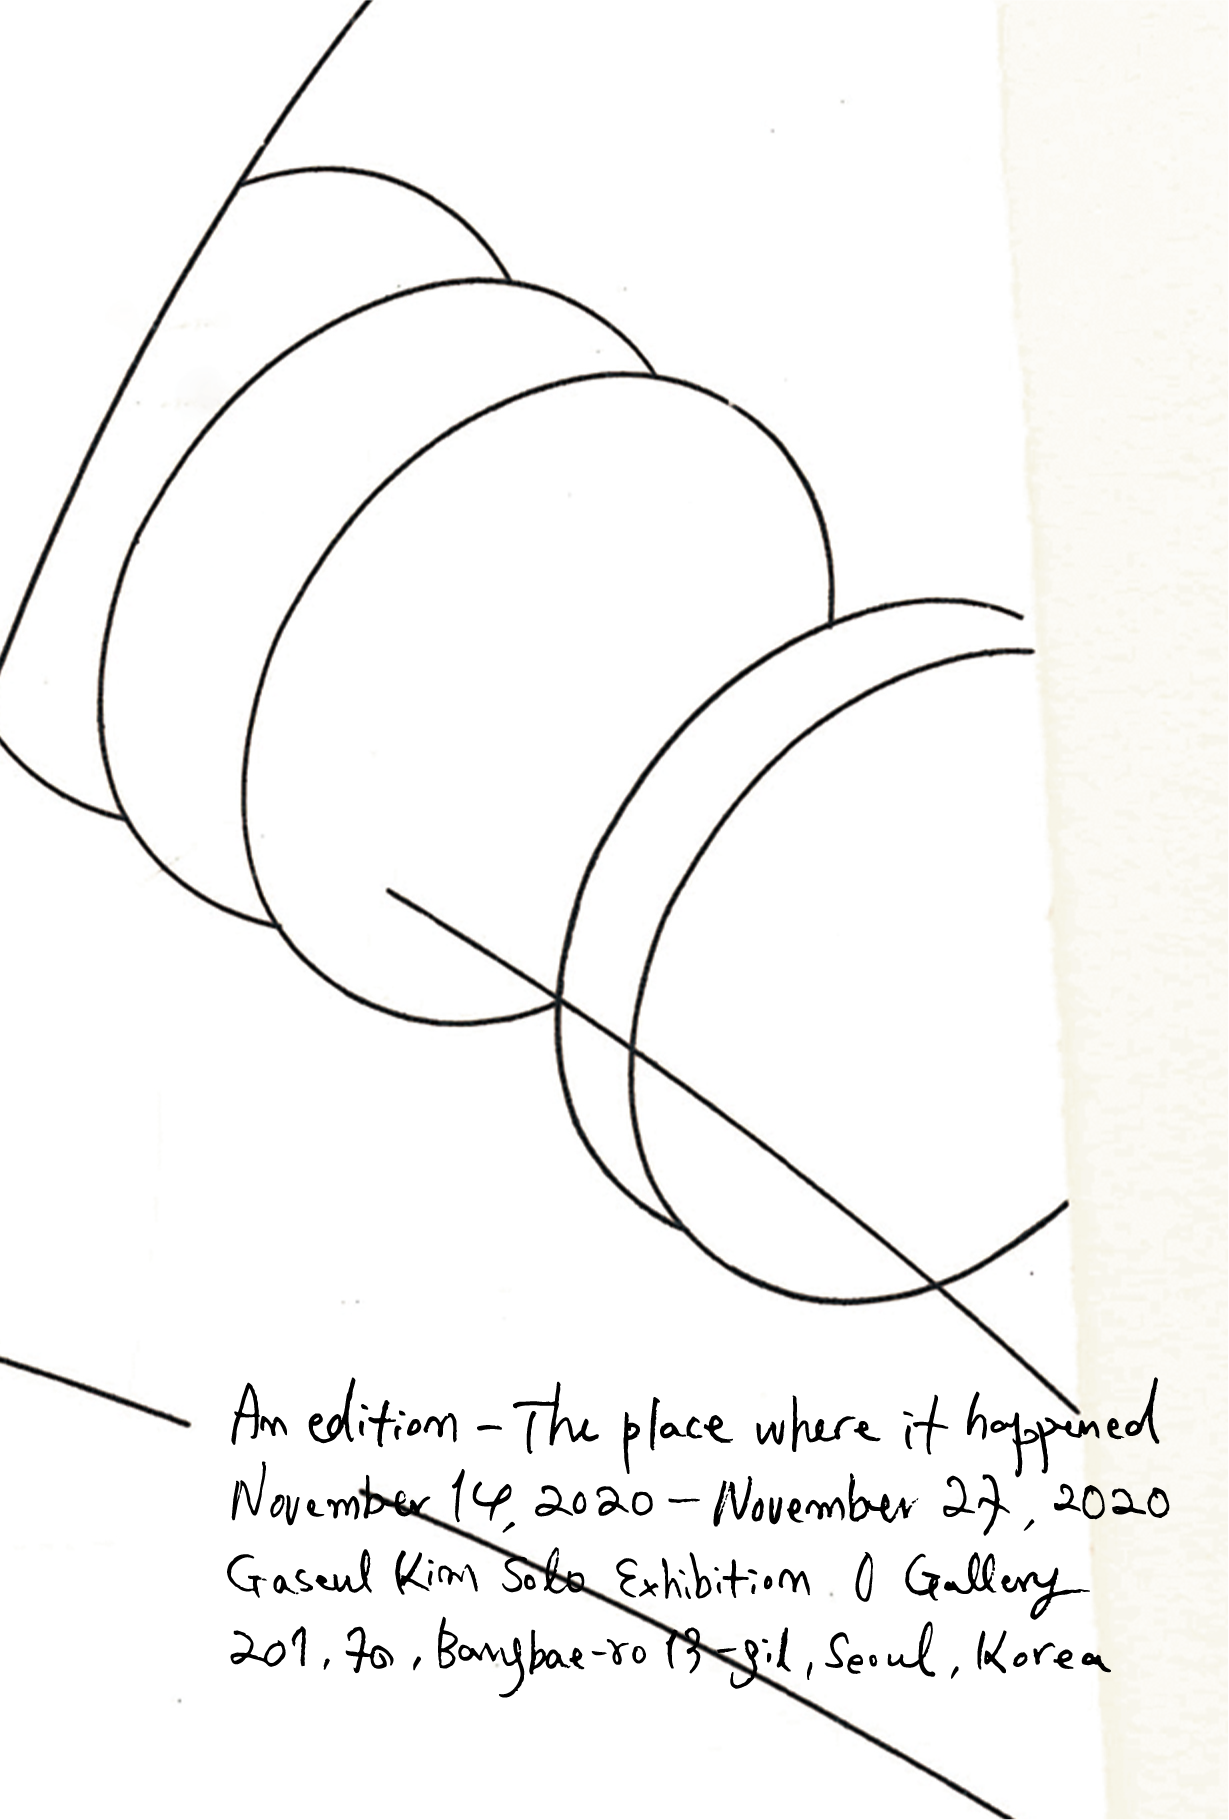 An edition - The place where it happened
November 14, 2020 - November 27, 2020
Gaseul Kim Solo Exhibition. O Gallery
201, 70, Bangbae-ro 13-gil, Seoul, Korea